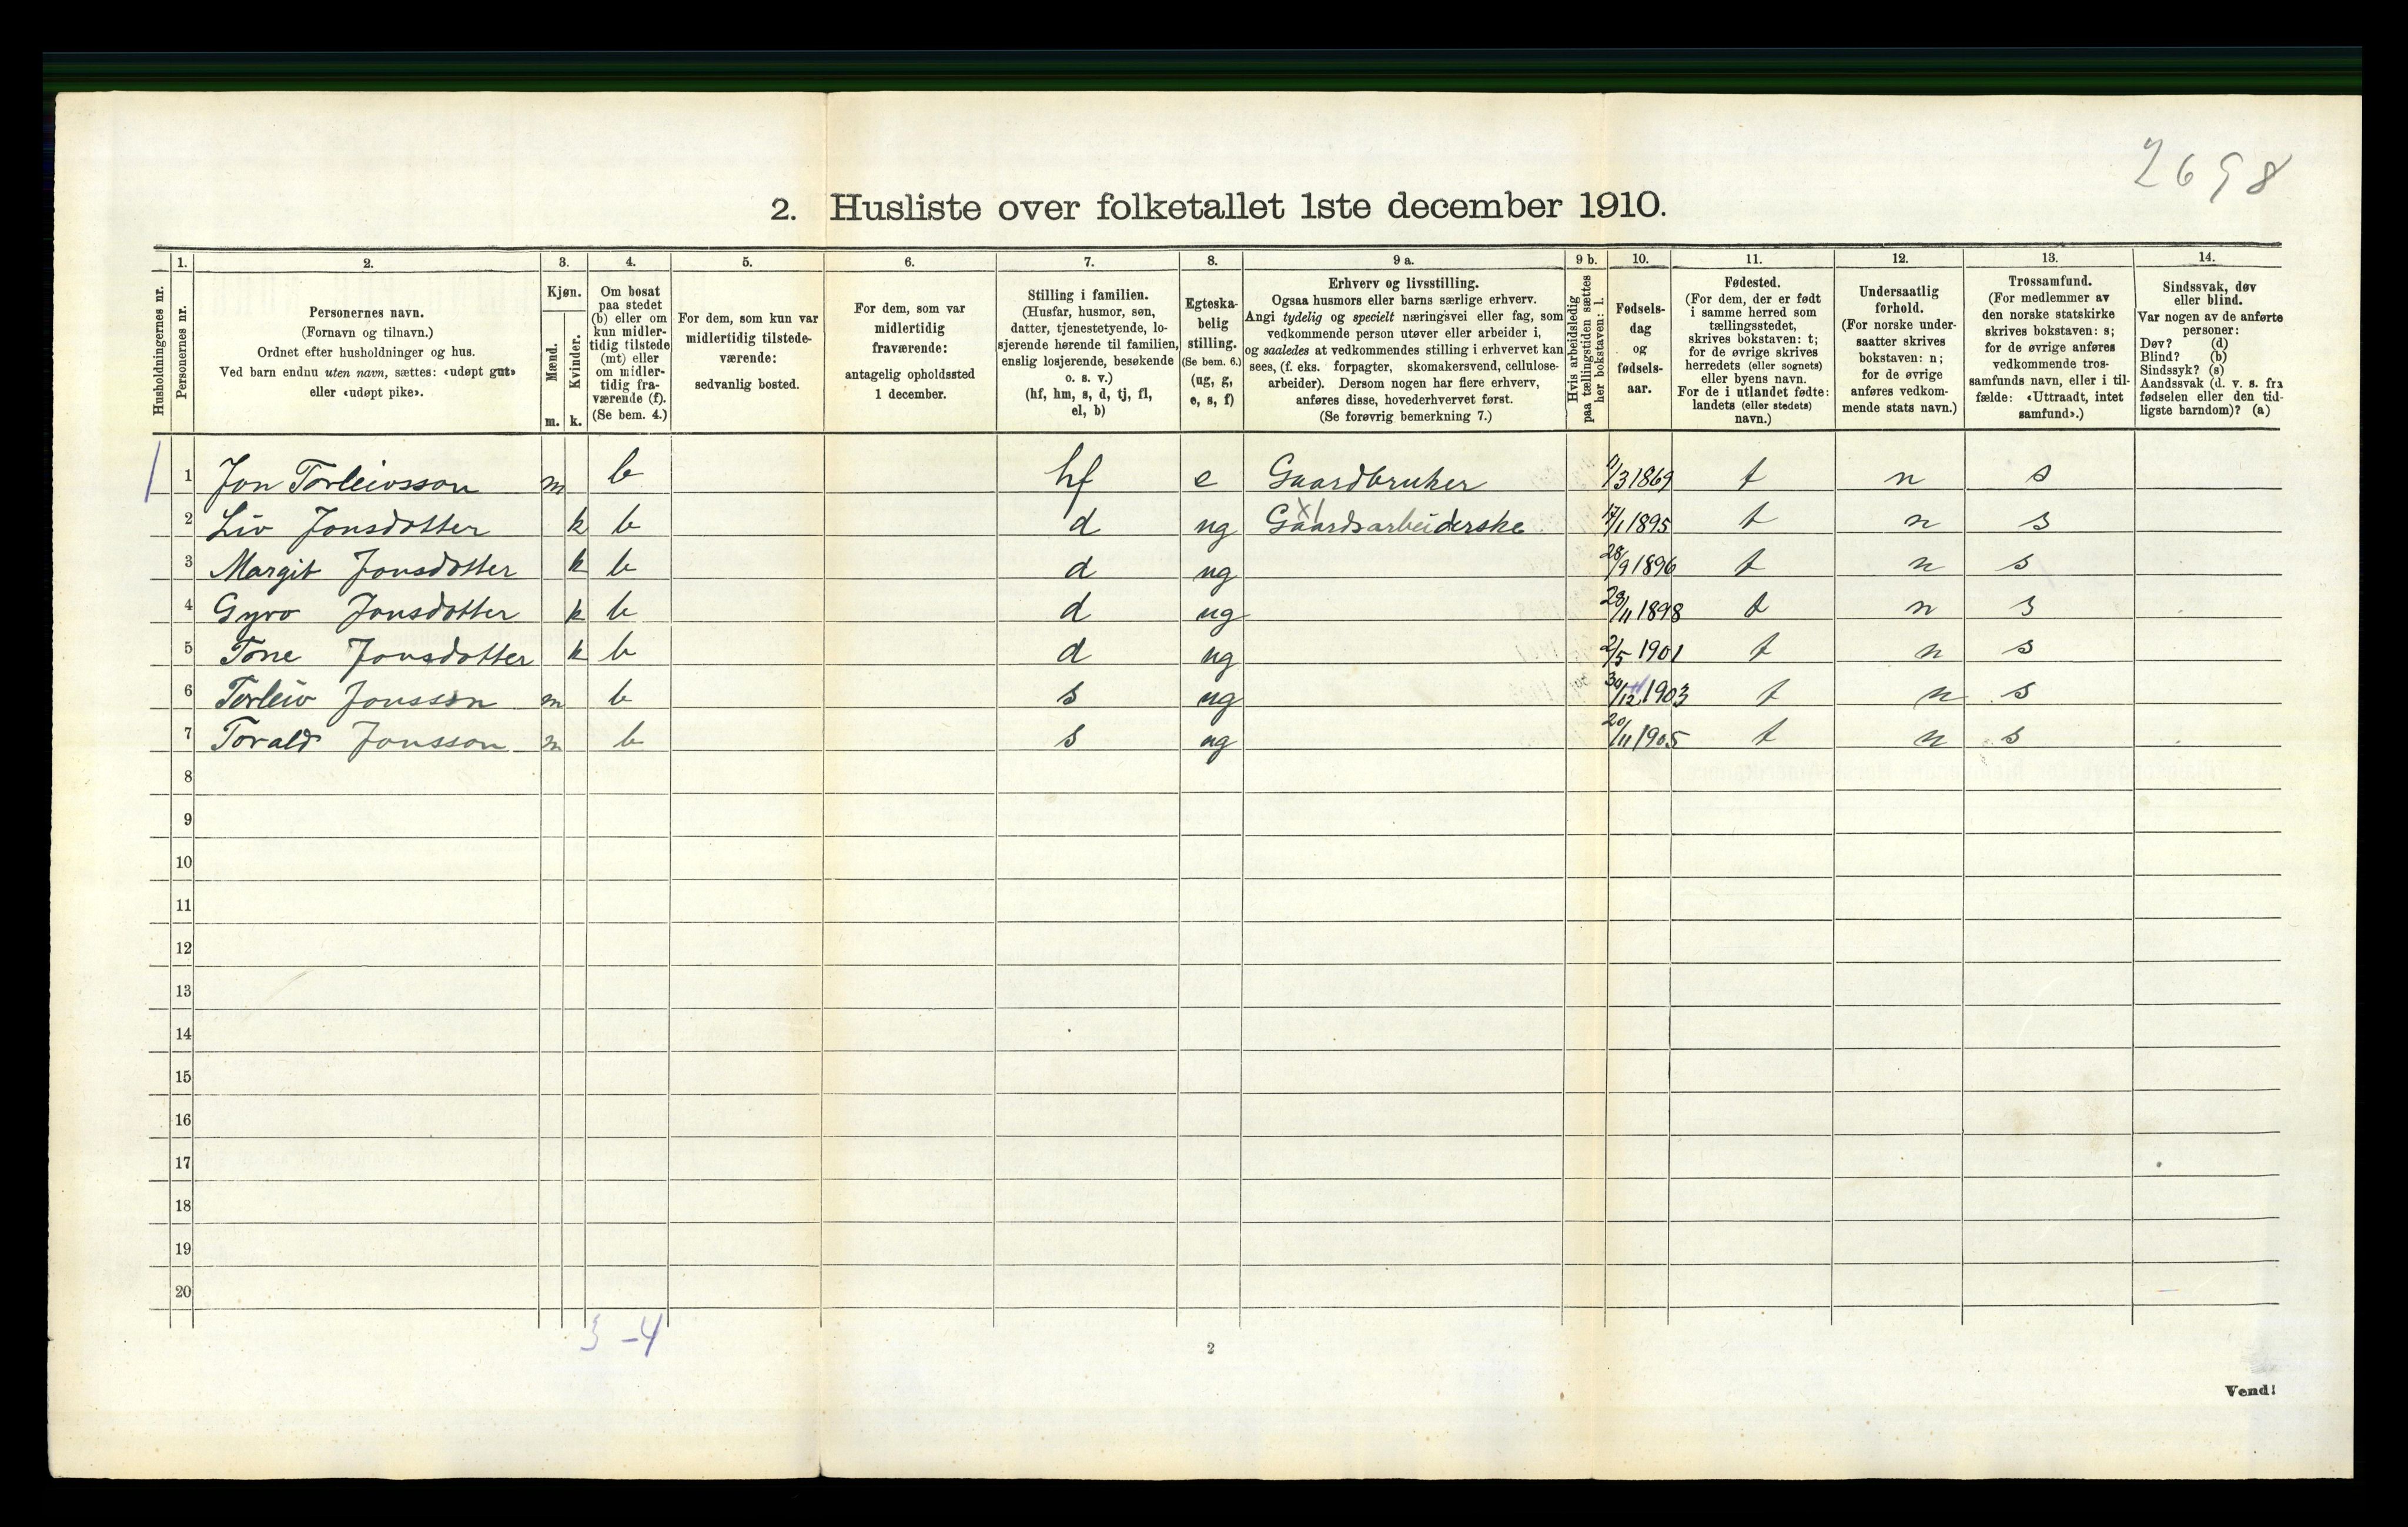 2698
2. Husliste over folketallet 1ste december 1910.
1. 2. 3. 4. 5. 6. 7. 8. 9 a. 9 b. 10. 11. 12. 13. 14.
Husholdningernes nr.
Personernes nr.
Personernes navn.
(Fornavn og tilnavn.)
Ordnet efter husholdninger og hus.
Ved barn endnu uten navn, sættes: «udøpt gut»
eller «udøpt pike».
Kjøn.
Mænd.
Kvinder.
m. k.
Om bosat
paa stedet
(b) eller om
kun midler-
tidig tilstede
(mt) eller
om midler-
tidig fra-
værende (f).
(Se bem. 4.)
For dem, som kun var
midlertidig tilstede-
værende:
sedvanlig bosted.
For dem, som var
midlertidig
fraværende:
antagelig opholdssted
1 december.
Stilling i familien.
(Husfar, husmor, søn,
datter, tjenestetyende, lo-
sjerende hørende til familien,
enslig losjerende, besøkende
o. s. v.)
(hf, hm, s, d, tj, fl,
el, b)
Egteska-
belig
stilling.
(Se bem. 6.)
(ug, g,
e, s, f)
Erhverv og livsstilling.
Ogsaa husmors eller barns særlige erhverv.
Angi tydelig og specielt næringsvei eller fag, som
vedkommende person utøver eller arbeider i,
og saaledes at vedkommendes stilling i erhvervet kan
sees, (f. eks. forpagter, skomakersvend, cellulose-
arbeider). Dersom nogen har flere erhverv,
anføres disse, hovederhvervet først.
(Se forøvrig bemerkning 7.)
Hvis arbeidsledig
paa tællingstiden sættes
her bokstaven: l.
Fødsels-
dag
og
fødsels-
aar.
Fødested.
(For dem, der er født
i samme herred som
tællingsstedet,
skrives bokstaven: t;
for de øvrige skrives
herredets (eller sognets)
eller byens navn.
For de i utlandet fødte:
landets (eller stedets)
navn.)
Undersaatlig
forhold.
(For norske under-
saatter skrives
bokstaven: n;
for de øvrige
anføres vedkom-
mende stats navn.)
Trossamfund.
(For medlemmer av
den norske statskirke
skrives bokstaven: s;
for de øvrige anføres
vedkommende tros-
samfunds navn, eller i til-
fælde: «Uttraadt, intet
samfund».)
Sindssvak, døv
eller blind.
Var nogen av de anførte
personer:
Døv? (d)
Blind? (b)
Sindssyk? (s)
Aandssvak (d. v. s. fra
fødselen eller den tid-
ligste barndom)? (a)
1 1 Jon Torleivsson m b hf e Gaardbruker /3 1869 t n s
2 Liv Jonsdotter k b d ug Gaardsarbeiderske 17/1 1895 t n s
3 Margit Jonsdotter k b d ug 28/9 1896 t n s
4 Gyro Jonsdotter k b d ug 28/11 1898 t n s
5 Tone Jonsdotter k b d ug 2/5 1901 t n s
6 Torleiv Jonsson m b s ug 30/12 1903 t n s
7 Torald Jonsson m b s ug 20/11 1905 t n s
8
9
10
11
12
13
14
15
16
17
18
19
20
3 – 4
2
Vend!